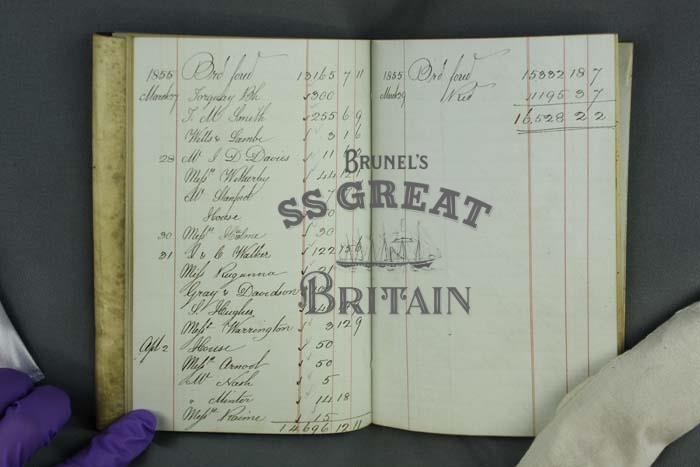 1855 Bro ford 13165 7 11
March 27 Torquay Bk 300
T. M. Smith 255 6 9
Wells & Lambe 3 16
28 Mr J D Davies 11
Messrs Witherby
Mr Stanford
House
30 Messrs Holme 30
31 J & C Walker 122 15 6
Miss
Gray & Davidson
S. Hughes
Messrs Warrington 3 12 9
Apl 2 House 50
Messrs Arnool 50
Mr Nash 5
" Minter 14 18
Messrs Raime 15
14696 12 11
1855 Bro ford 15332 18 7
March 29 1195 3 7
16,528 2 2
BRUNEL'S
SS GREAT
BRITAIN